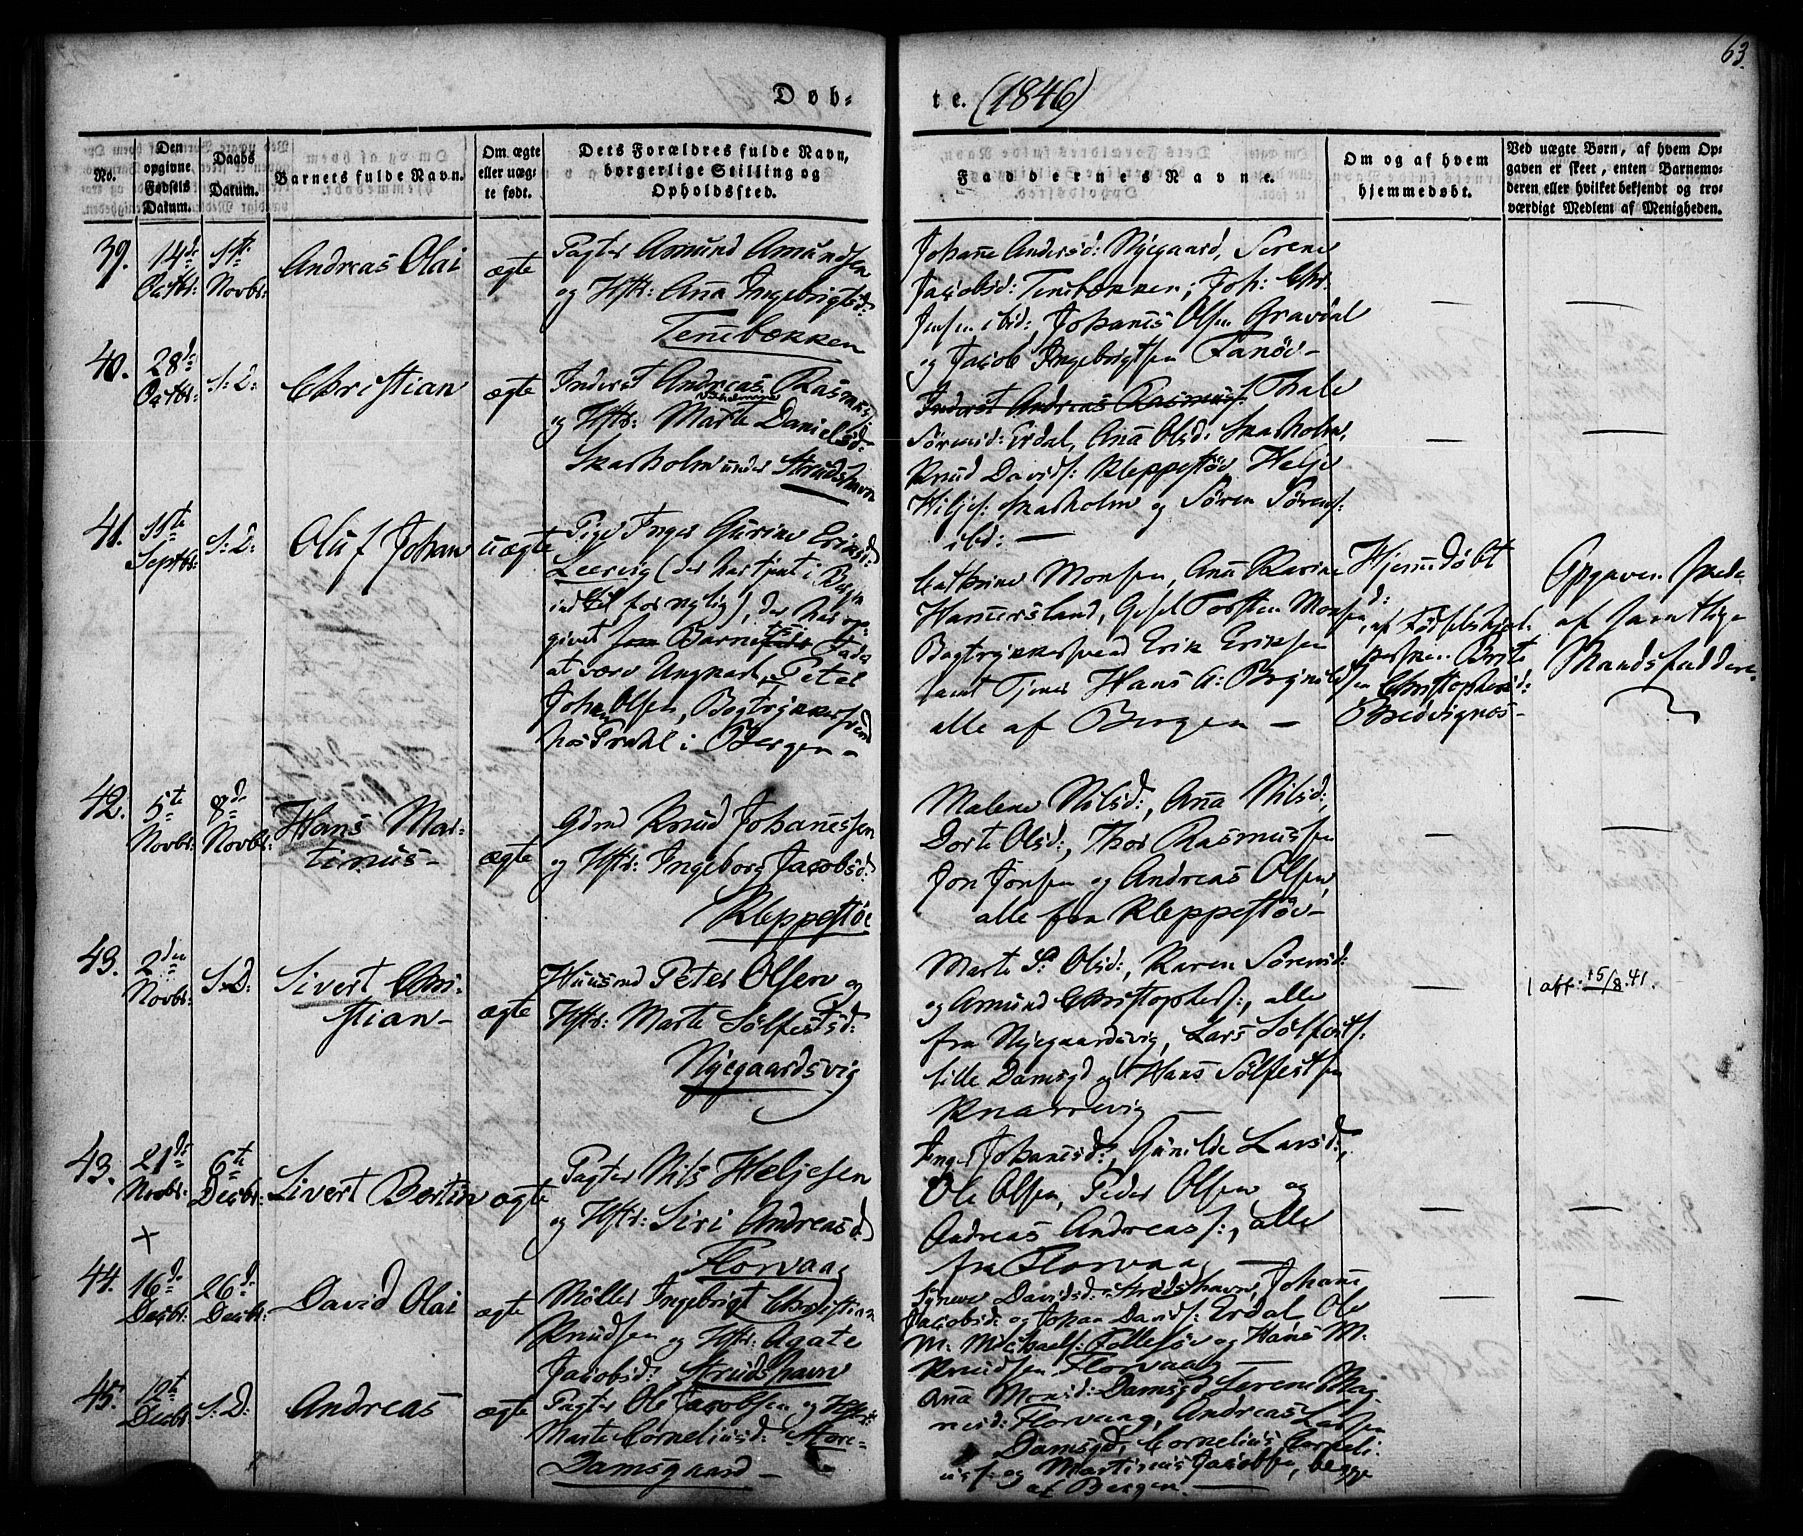 63.
Døb-
te. (1846)
No.
Den opgivne Fødsels Datum.
Daabs Datum.
Barnets fulde Navn.
Om ægte eller uæg-
te født.
Dets Forældres fulde Navn,
borgerlige Stilling og
Opholdssted.
Faddernes Navne.
Om og af hvem
hjemmedøbt.
Ved uægte Børn, af hvem Op-
gaven er skeet, enten Barnemo-
deren eller hvilket bekjendt og tro-
værdigt Medlem af Menigheden.
39.
14de Octbr:
1ste Novbr:
Andreas Olai
ægte
Pagter Amund Amundsen
og Hstr: Anna Ingebrigtsd:
Tennebækken
Johanne Andersd: Nyegaard, Serene
Jacobsd: Tennebækken; Joh: Chr.
Jensen ibid:, Johannes Olsen Gravdal
og Jacob Ingebrigtsen Fanøe -
40.
28de Octbr:
S: D:
Christian
ægte
Inderst Andreas Rasmuss:
og Hstr: Marte Danielsd:
Skarholm under Strudshavn
Inderst Andreas Rasmuss: Thale
Sørensd: Erdal, Anna Olsd: Skarholm,
Knud Davids: Kleppestøe, Helje
Hiljes: Skarholm og Søren Sørens:
ibid: -
41.
11te Septbr:
S: D:
Oluf Johan
uægte
Pige Inger Gurine Eriksd:
Leervig (der har tjent i Byen
indtil for nylig), der har op-
givet Barnets Fader
at være Ungkarl, Peter
Johan Olsen, Bogtrykkersvend
hos Prahl i Bergen -
Cathrine Monsen, Anna Karine
Hammersland, Gesel Torsten Monsen,
Bogtrykkersvend Erik Eriksen
samt Tjener Hans A: Brynildsen
alle af Bergen -
Hjemmedøbt
af Fødselshjel-
persken Brite
Christophersd:
Bredvignes -
Opgaven skede
af samtlige
Mandsfaddere.
42.
5te Novbr:
8de Novbr:
Hans Mar-
tinus -
ægte
Gdmd Knud Johannessen
og Hstr: Ingeborg Jacobsd:
Kleppestøe
Malene Nilsd:, Anna Nilsd:,
Dorte Olsd:, Thor Rasmussen
Jon Jonsen og Andreas Olsen,
alle fra Kleppestøe -
43.
2den Novbr:
S: D:
Sivert Chri-
stian -
ægte
Huusmd Peter Olsen og
Hstr: Marte Sølfestsd:
Nyegaardsvig
Marte Olsd:, Karen Sørensd:
og Amund Christophers:, alle
fra Nyegaardsvig, Lars Sølfests:
lille Damsgd og Hans Sølfestsen
Knarrevig -
1 att: 15/8.41.
43.
21de Novbr:
6te Decbr:
Sivert Bertin
ægte
Pagter Nils Heljesen
og Hstr: Siri Andreasd:
Florvaag
Inger Johannesd:, Gunilde Larsd:,
Ole Olsen, Peder Olsen og
Andreas Andreas:, alle
fra Florvaag -
44.
16de Decbr:
26de Decbr:
David Olai
ægte
Møller Ingebrigt Christian
Knudsen og Hstr: Agate
Jacobsd: Strudshavn
Synneve Davidsd: Strudshavn, Johanne
Jacobsd: og Johan Davids: Erdal, Ole
M: Michaels: Follesøe og Hans M:
Knudsen Florvaag -
45.
12te Decbr:
S: D:
Andreas
ægte
Pagter Ole Jacobsen og Hstr:
Marte Corneliusd: Store-
Damsgaard -
Anna Monsd: Damsgd, Serene Mag-
nesd: Florvaag, Andreas Larsen
Damsgd, Cornelius Corneli-
us: og Martinus Jacobsen, begge
af Bergen. -